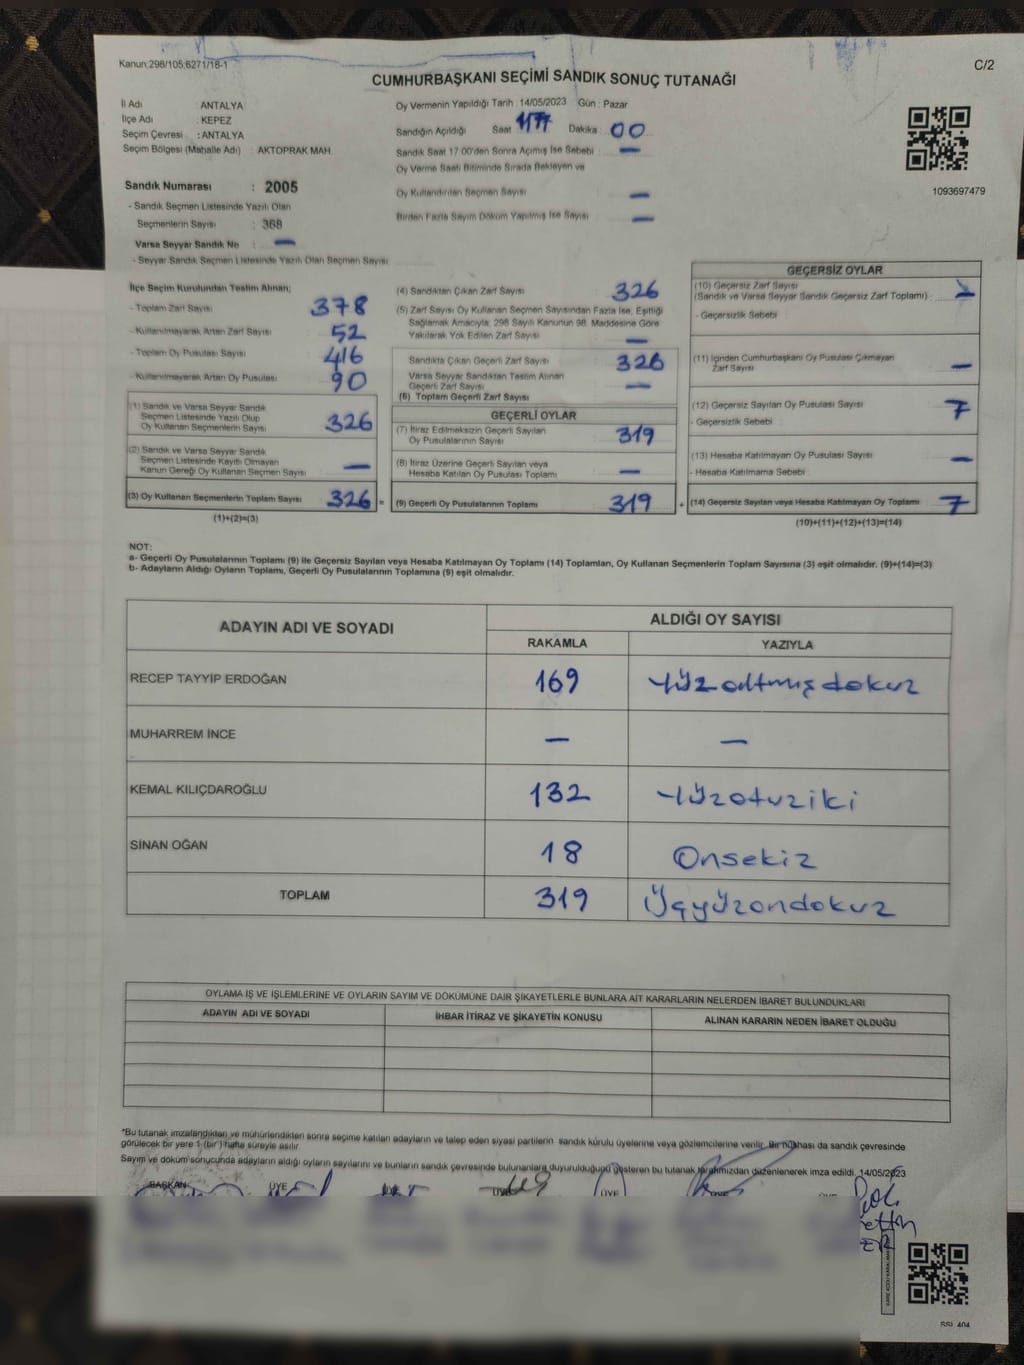 Kanun:298/105;6271/18-1
C/2
CUMHURBAŞKANI SEÇİMİ SANDIK SONUÇ TUTANAĞI
İl Adı : ANTALYA
İlçe Adı : KEPEZ
Seçim Çevresi : ANTALYA
Seçim Bölgesi (Mahalle Adı) : AKTOPRAK MAH.
Oy Vermenin Yapıldığı Tarih : 14/05/2023 Gün : Pazar
Sandığın Açıldığı Saat Dakika 00
Sandık Saat 17:00'den Sonra Açımış İse Sebebi : —
Oy Verme Saati Bitiminde Sırada Bekleyen ve
Oy Kullandırılan Seçmen Sayısı —
Birden Fazla Sayım Döküm Yapılmış İse Sayısı —
1093697479
Sandık Numarası : 2005
- Sandık Seçmen Listesinde Yazılı Olan
Seçmenlerin Sayısı : 368
Varsa Seyyar Sandık No : —
- Seyyar Sandık Seçmen Listesinde Yazılı Olan Seçmen Sayısı
İlçe Seçim Kurulundan Teslim Alınan;
- Toplam Zarf Sayısı : 378
- Kullanılmayarak Artan Zarf Sayısı : 52
- Toplam Oy Pusulası Sayısı : 416
- Kullanılmayarak Artan Oy Pusulası : 90
(1) Sandık ve Varsa Seyyar Sandık
Seçmen Listesinde Yazılı Olup
Oy Kullanan Seçmenlerin Sayısı : 326
(2) Sandık ve Varsa Seyyar Sandık
Seçmen Listesinde Kayıtlı Olmayan
Kanun Gereği Oy Kullanan Seçmen Sayısı : —
(3) Oy Kullanan Seçmenlerin Toplam Sayısı : 326 =
(1)+(2)=(3)
(4) Sandıktan Çıkan Zarf Sayısı : 326
(5) Zarf Sayısı Oy Kullanan Seçmen Sayısından Fazla İse, Eşitliği
Sağlamak Amacıyla; 298 Sayılı Kanunun 98. Maddesine Göre
Yakılarak Yok Edilen Zarf Sayısı : —
Sandıkta Çıkan Geçerli Zarf Sayısı : 326
Varsa Seyyar Sandıktan Teslim Alınan
Geçerli Zarf Sayısı : —
(6) Toplam Geçerli Zarf Sayısı
GEÇERLİ OYLAR
(7) İtiraz Edilmeksizin Geçerli Sayılan
Oy Pusulalarının Sayısı : 319
(8) İtiraz Üzerine Geçerli Sayılan veya
Hesaba Katılan Oy Pusulası Toplamı : —
(9) Geçerli Oy Pusulalarının Toplamı : 319 +
GEÇERSİZ OYLAR
(10) Geçersiz Zarf Sayısı
(Sandık ve Varsa Seyyar Sandık Geçersiz Zarf Toplamı) :
- Geçersizlik Sebebi :
(11) İçinden Cumhurbaşkanı Oy Pusulası Çıkmayan
Zarf Sayısı : —
(12) Geçersiz Sayılan Oy Pusulası Sayısı : 7
- Geçersizlik Sebebi :
(13) Hesaba Katılmayan Oy Pusulası Sayısı : —
- Hesaba Katılmama Sebebi :
(14) Geçersiz Sayılan veya Hesaba Katılmayan Oy Toplamı : 7
(10)+(11)+(12)+(13)=(14)
NOT:
a- Geçerli Oy Pusulalarının Toplamı (9) ile Geçersiz Sayılan veya Hesaba Katılmayan Oy Toplamı (14) Toplamları, Oy Kullanan Seçmenlerin Toplam Sayısına (3) eşit olmalıdır. (9)+(14)=(3)
b- Adayların Aldığı Oyların Toplamı, Geçerli Oy Pusulalarının Toplamına (9) eşit olmalıdır.
ADAYIN ADI VE SOYADI
ALDIĞI OY SAYISI
RAKAMLA
YAZIYLA
RECEP TAYYİP ERDOĞAN 169 Yüzaltmışdokuz
MUHARREM İNCE — —
KEMAL KILIÇDAROĞLU 132 Yüzotuziki
SİNAN OĞAN 18 Onsekiz
TOPLAM 319 Üçyüzondokuz
OYLAMA İŞ VE İŞLEMLERİNE VE OYLARIN SAYIM VE DÖKÜMÜNE DAİR ŞİKAYETLERLE BUNLARA AİT KARARLARIN NELERDEN İBARET BULUNDUKLARI
ADAYIN ADI VE SOYADI
İHBAR İTİRAZ VE ŞİKAYETİN KONUSU
ALINAN KARARIN NEDEN İBARET OLDUĞU
*Bu tutanak imzalandıktan ve mühürlendikten sonra seçime katılan adayların ve talep eden siyasi partilerin sandık kurulu üyelerine veya gözlemcilerine verilir. Bir nüshası da sandık çevresinde
görülecek bir yere 1 (bir) hafta süreyle asılır.
Sayım ve döküm sonucunda adayların aldığı oyların sayılarını ve bunların sandık çevresinde bulunanlara duyurulduğunu gösteren bu tutanak tarafımızdan düzenlenerek imza edildi. 14/05/2023
BAŞKAN ÜYE ÜYE ÜYE ÜYE ÜYE ÜYE